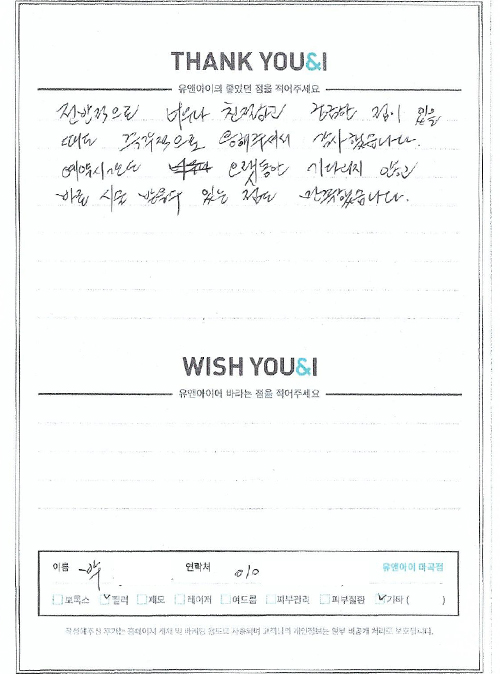 THANK YOU&I
유앤아이의 좋았던 점을 적어주세요
전반적으로 너무나 친절하고 궁금한 점이 있을
때도 즉각적으로 응해주셔서 감사했습니다.
예약시간도 오랫동안 기다리지 않고
바로 시술 받을수 있는 점도 만족했습니다.
WISH YOU&I
유앤아이에 바라는 점을 적어주세요
이름 박 연락처 010 유앤아이 마곡점
보톡스 필러 제모 레이저 여드름 피부관리 피부질환 기타 ( )
작성해주신 후기는 홈페이지 게재 및 마케팅 용도로 사용되며 고객님의 개인정보는 일부 비공개 처리로 보호됩니다.